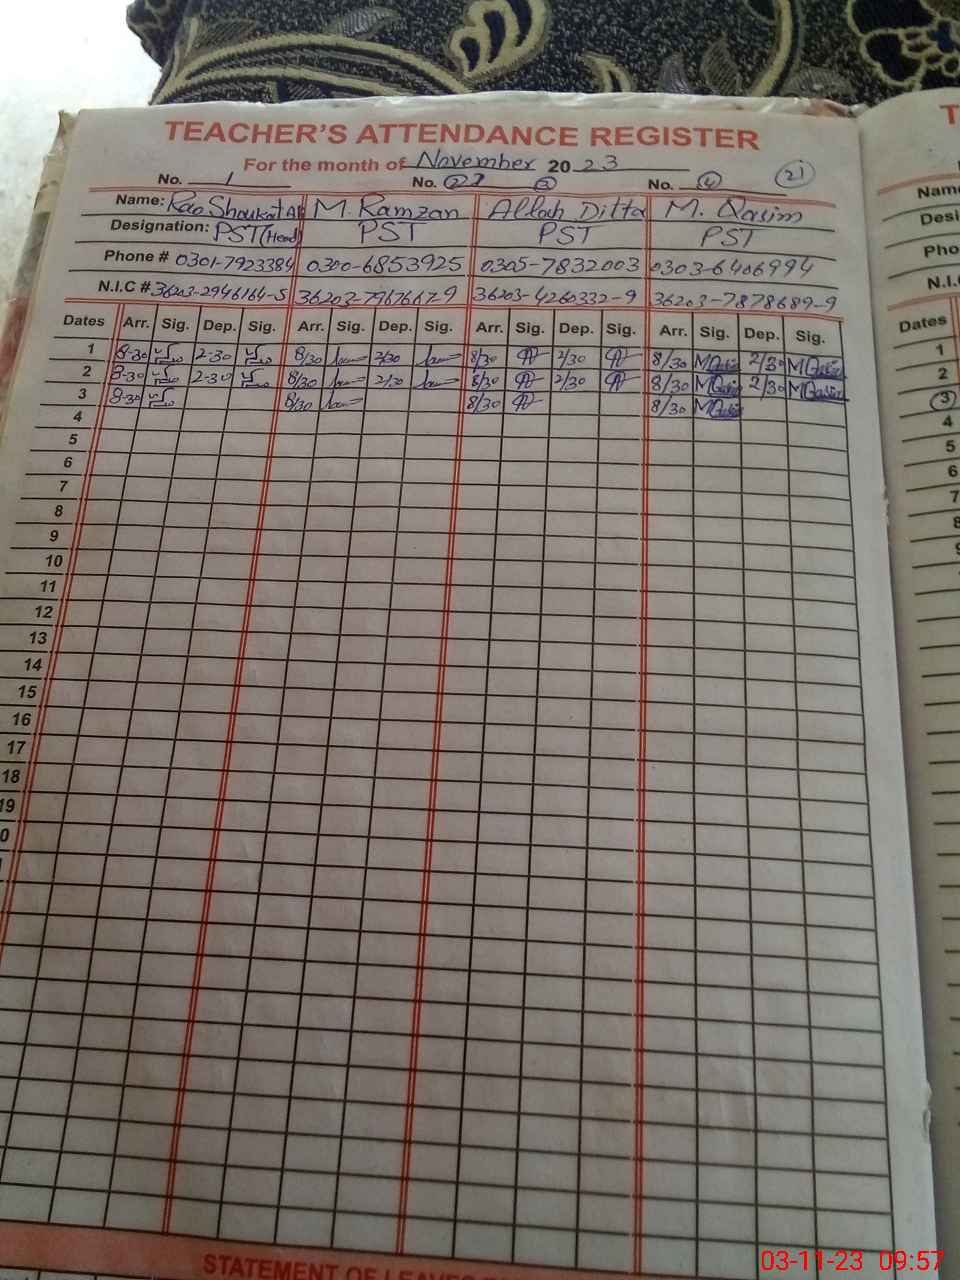 TEACHER'S ATTENDANCE REGISTER
For the month of November 20 23
No. 1 No. 2 3 No. 4 21
Name: Rao Shoukat Ali M. Ramzan Allah Ditta M. Qasim
Designation: PST (Head) PST PST PST
Phone # 0301-7923384 0300-6853925 0305-7832003 0303-6406994
N.I.C # 36203-2946164-5 36203-7967667-9 36203-4260332-9 36203-7878689-9
Dates Arr. Sig. Dep. Sig. Arr. Sig. Dep. Sig. Arr. Sig. Dep. Sig. Arr. Sig. Dep. Sig.
1 8-30 2-30 8/30 2/30 8/30 2/30 8/30 MQasim 2/30 MQasim
2 8-30 2-30 8/30 2/30 8/30 2/30 8/30 MQasim 2/30 MQasim
3 8-30 8/30 8/30 8/30 MQasim
4
5
6
7
8
9
10
11
12
13
14
15
16
17
18
19
0
STATEMENT OF LEAVES
T
Name
Desi
Pho
N.I.
Dates
1
2
3
4
5
6
7
8
03-11-23 09:57